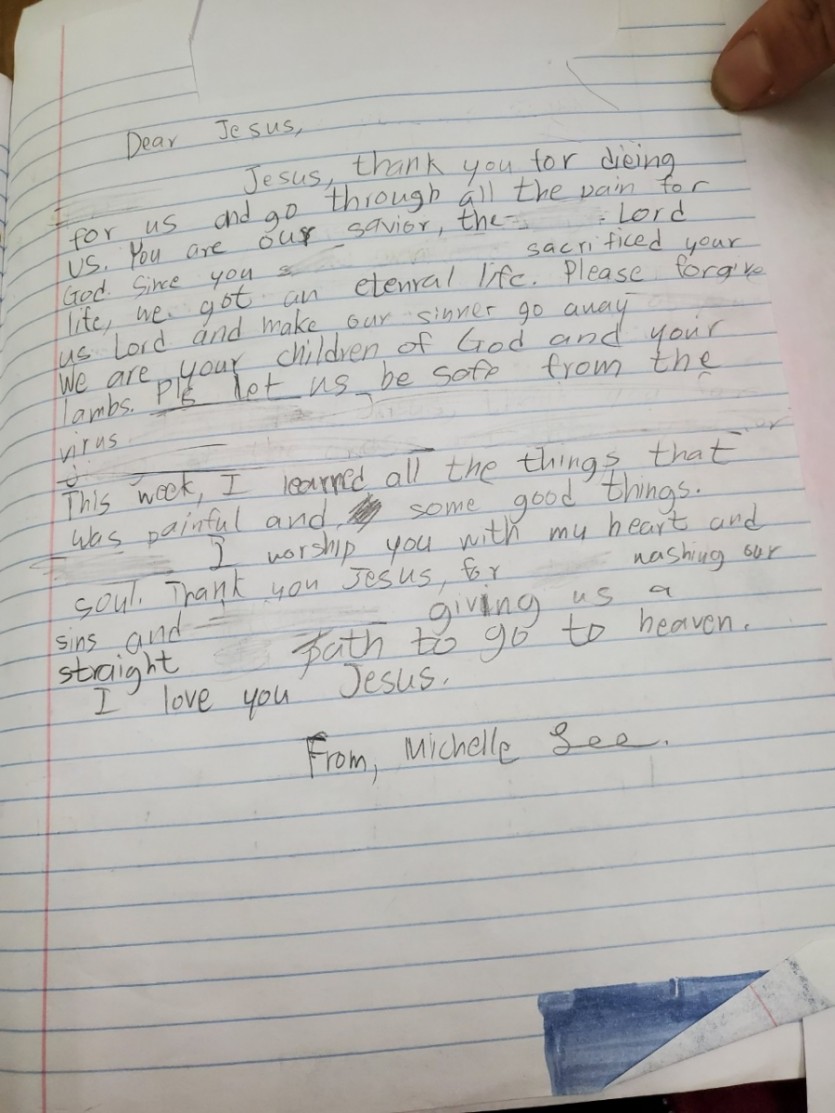 Dear Jesus,
Jesus, thank you for dieing
for us and go through all the pain for
us. You are our savior, the Lord
God. Since you sacrificed your
life, we got an etenral life. Please forgive
us Lord and make our sinner go away
We are your children of God and your
lambs. Pls let us be safe from the
virus
This week, I learned all the things that
was painful and some good things.
I worship you with my heart and
soul. Thank you Jesus, for washing our
sins and giving us a
straight path to go to heaven.
I love you Jesus.
From, Michelle Lee.